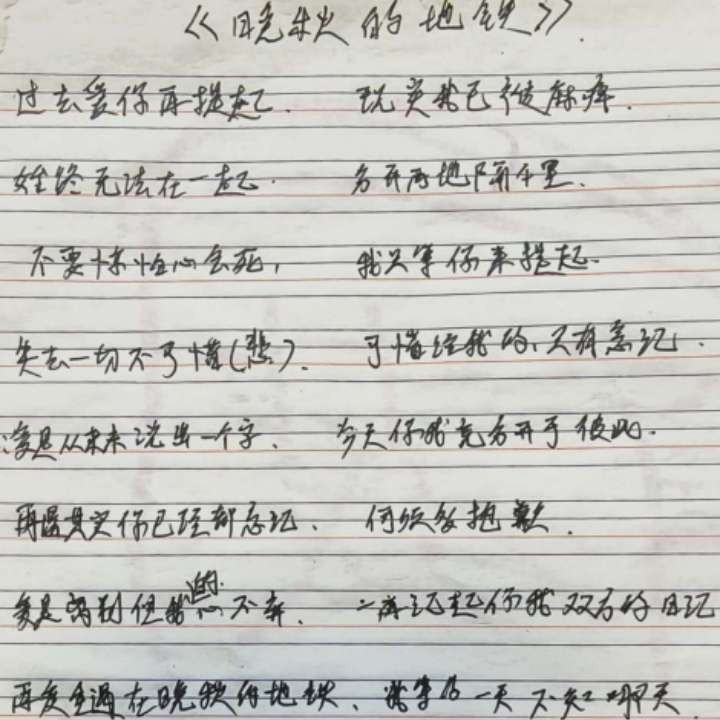 《晚秋的地铁》
过去爱你再提起. 现实我已被麻痹.
始终无法在一起. 分开两地隔千里.
不要怀恨心会死, 我只等你来提起.
失去一切不可惜(悲). 可惜给我的、只有忘记.
爱是从未来说出一个字、 今天你我竟分开于彼此.
再遇其实你已经都忘记、 何须多抱歉.
爱是离别但我的心不弃、 一再记起你我双方的日记
再度重遇在晚秋的地铁、 将等多一天 不知哪天